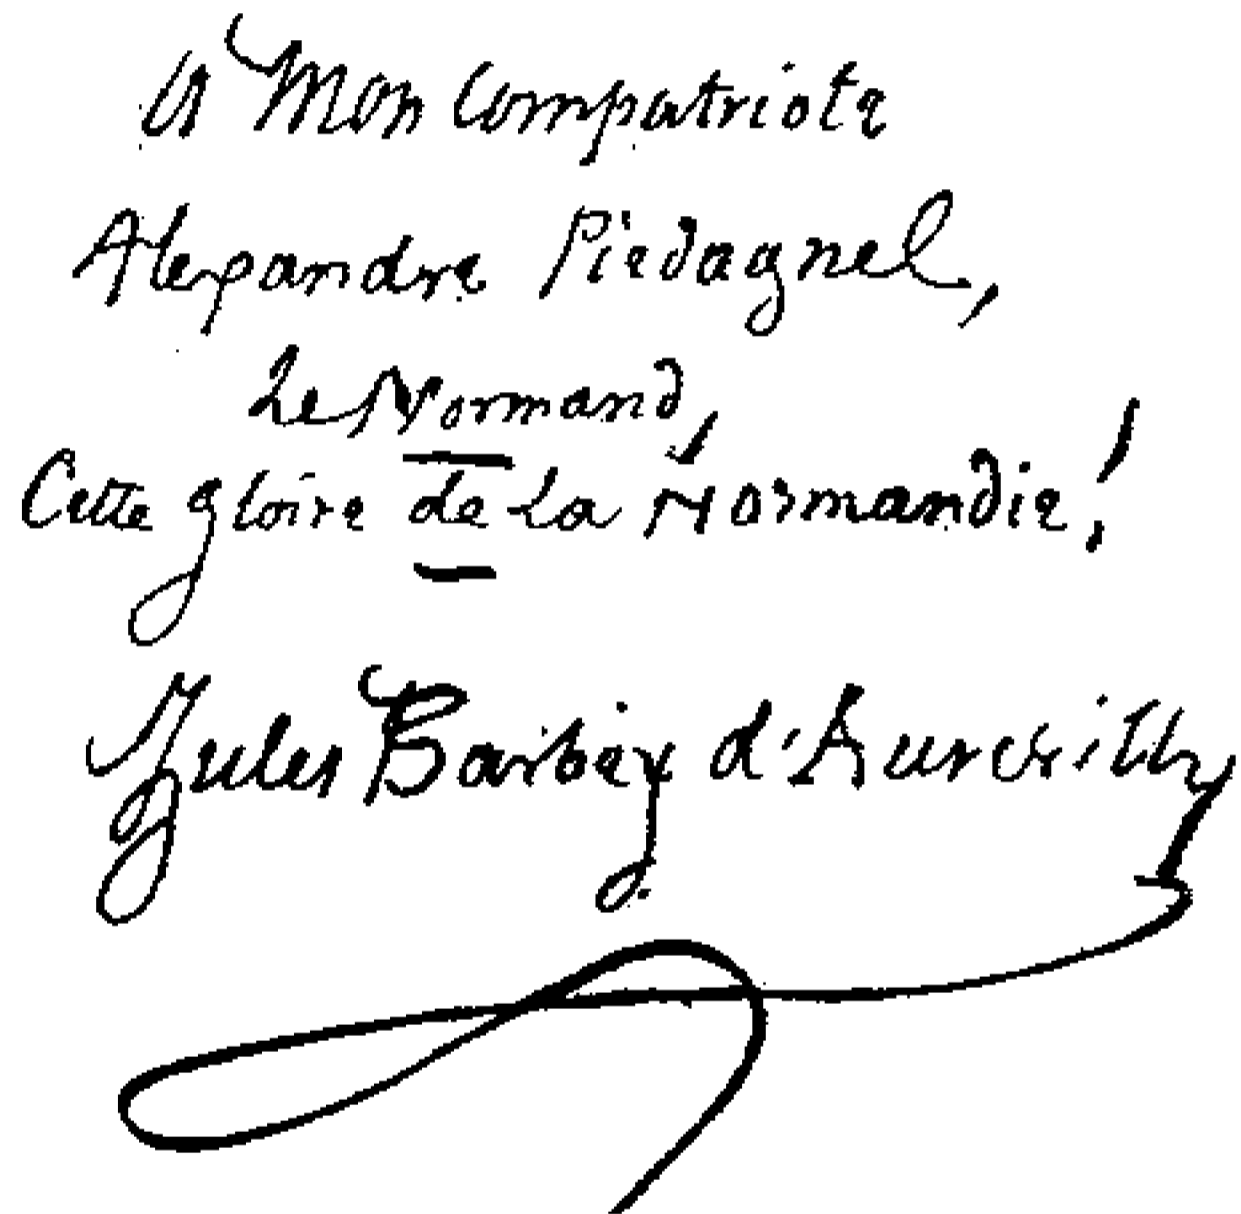 à Mon Compatriote
Alexandre Piedagnel,
Le Normand,
Cette gloire de la Normandie!
Jules Barbey d'Aurevilly